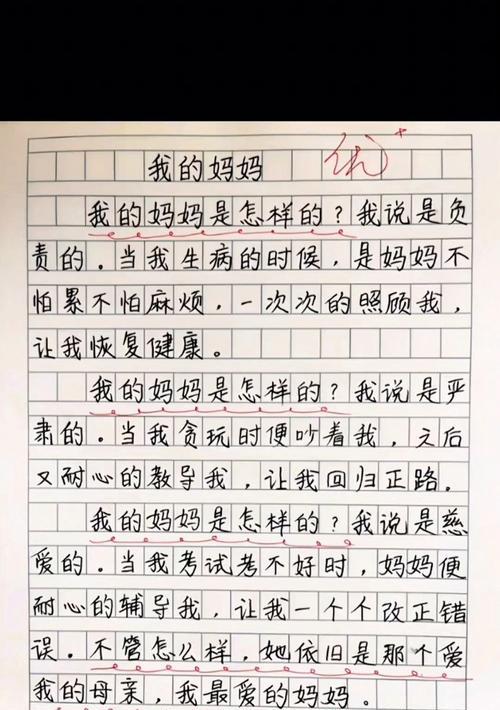 我的妈妈 优+
我的妈妈是怎样的？我说是负
责的．当我生病的时候，是妈妈不
怕累不怕麻烦，一次次的照顾我，
让我恢复健康。
我的妈妈是怎样的？我说是严
肃的．当我贪玩时便吵着我，之后
又耐心的教导我，让我回归正路．
我的妈妈是怎样的？我说是慈
爱的．当我考试考不好时，妈妈便
耐心的辅导我，让我一个个改正错
误．不管怎么样，她依旧是那个爱
我的母亲，我最爱的妈妈。